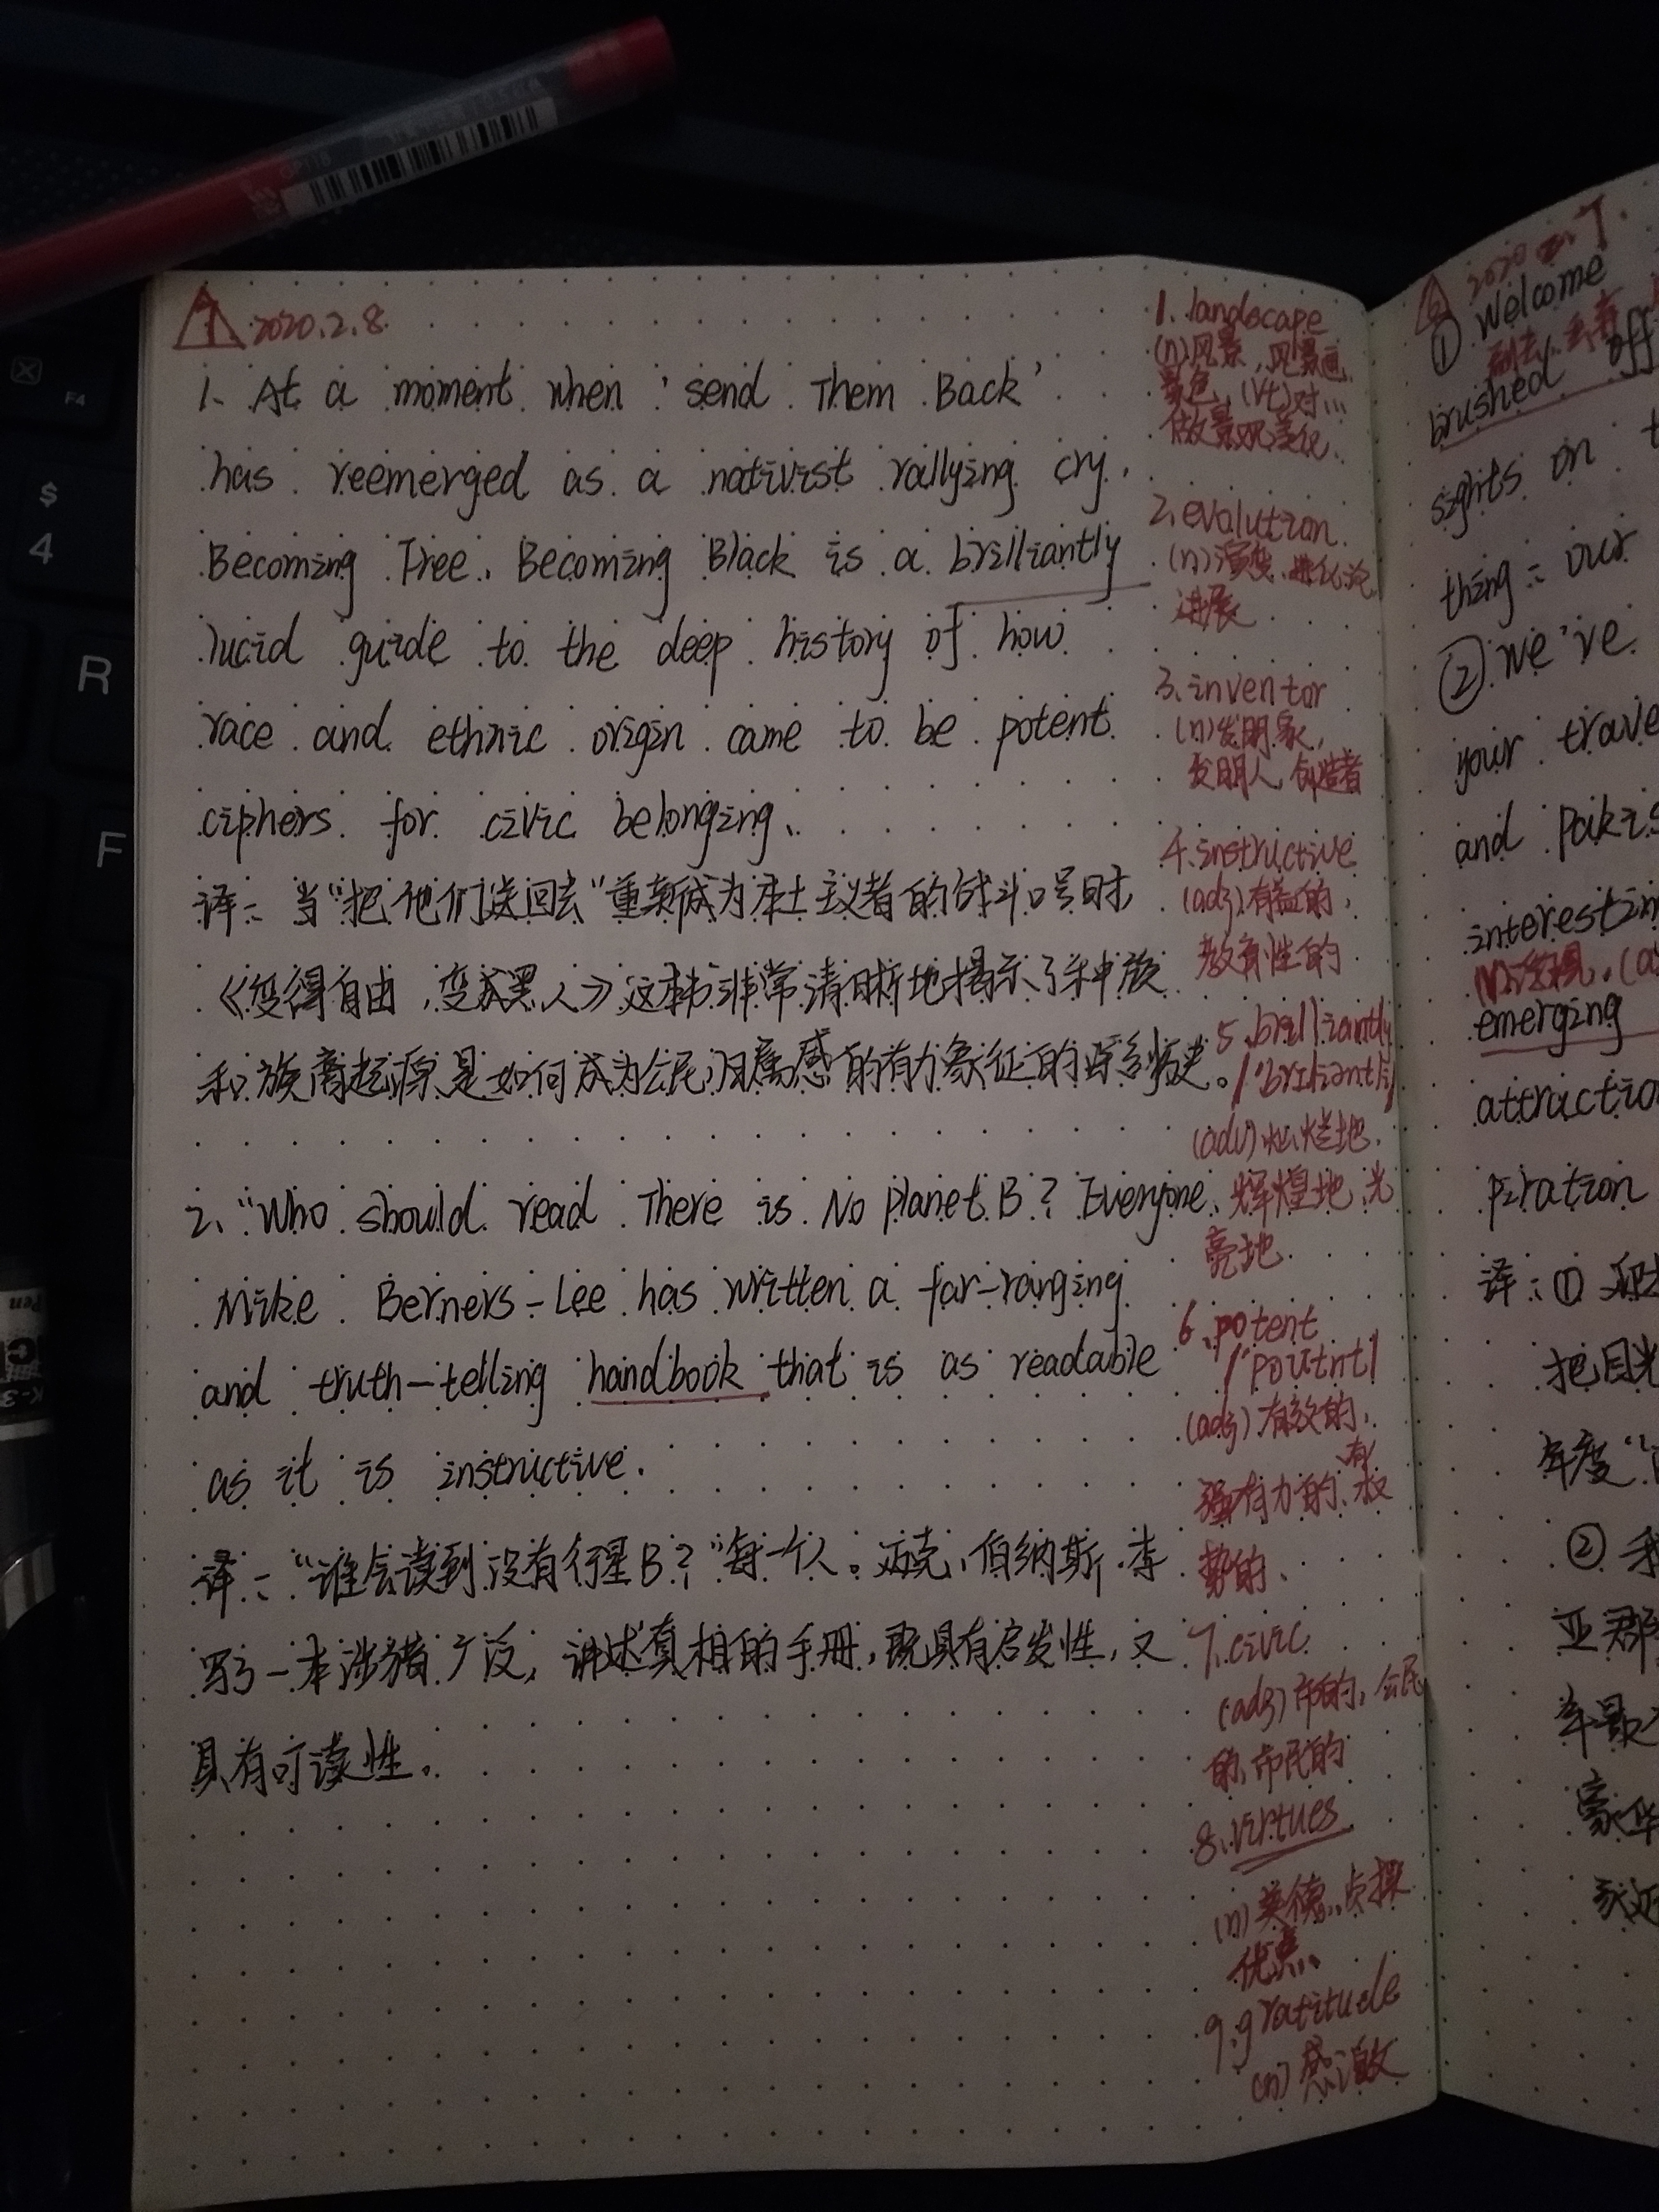 1 2020.2.8
1. At a moment when 'send Them Back'
has reemerged as a nativist rallying cry,
Becoming Free, Becoming Black is a brilliantly
lucid guide to the deep history of how
race and ethnic origin came to be potent
ciphers for civic belonging.
译：当"把他们送回去"重新成为本土主义者的战斗口号时,
《变得自由，变成黑人》这本书非常清晰地揭示了种族
和族裔起源是如何成为公民归属感的有力象征的历史。
2、"Who should read There is No Planet B? Everyone.
Mike Berners-Lee has written a far-ranging
and truth-telling handbook that is as readable
as it is instructive.
译："谁会读到没有行星B？"每一个人。迈克、伯纳斯·李
写了一本涉猎广泛，讲述真相的手册，既具有启发性，又
具有可读性。
1. landscape
(n)风景，风景画
景色，(vt)对...
做景观美化
2、evalution
(n)演变、进化论
进展
3、inventor
(n)发明家，
发明人，创造者
4、instructive
(adj)有益的，
教育性的
5、brilliantly
(adv)灿烂地、
辉煌地、光
亮地
6、potent
(adj)有效的，
强有力的、有权
势的、
7、civic
(adj)市的，公民
的、市民的
8、virtues
(n)美德、贞操
优点、
9、gratitude
(n)感激
2020
① Welcome
brushed off
sights on
thing: our
② we've
your trave
and Pakis
interestin
emerging
attractio
piration
译：①
把目光
年度"
②
亚群
年最
豪华